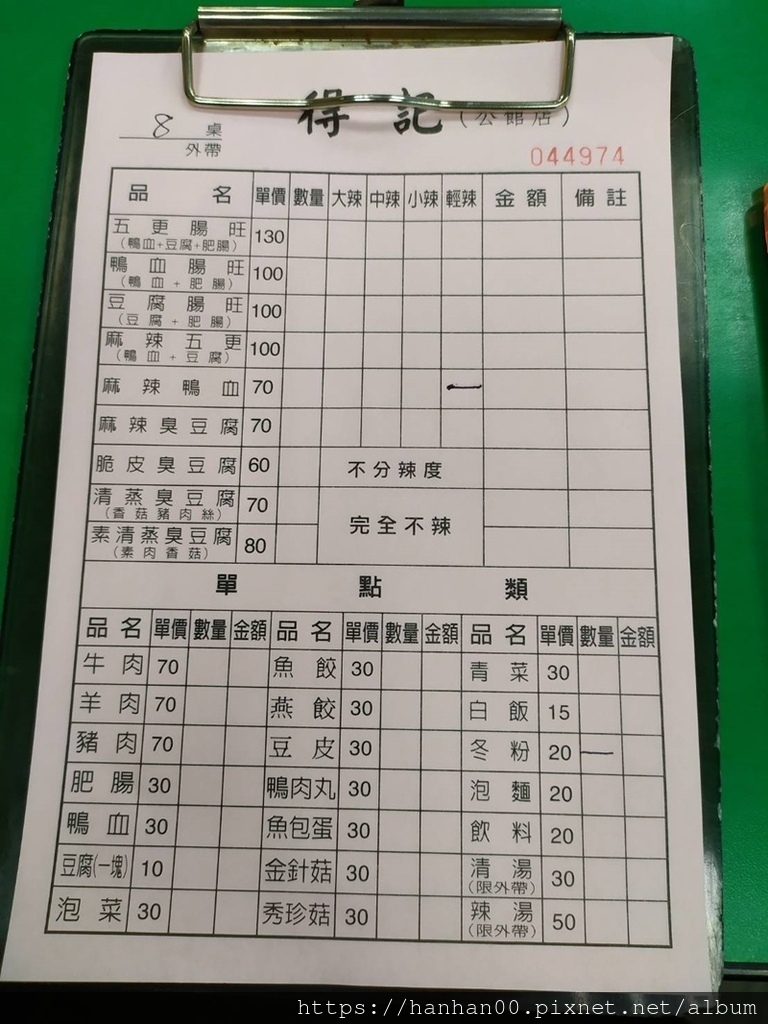 得記(公館店)
8 桌
外帶
044974
品名 單價 數量 大辣 中辣 小辣 輕辣 金額 備註
五更腸旺 130
(鴨血+豆腐+肥腸)
鴨血腸旺 100
(鴨血+肥腸)
豆腐腸旺 100
(豆腐+肥腸)
麻辣五更 100
(鴨血+豆腐)
麻辣鴨血 70 一
麻辣臭豆腐 70
脆皮臭豆腐 60 不分辣度
清蒸臭豆腐 70
(香菇豬肉絲)
完全不辣
素清蒸臭豆腐 80
(素肉香菇)
單點類
品名 單價 數量 金額 品名 單價 數量 金額 品名 單價 數量 金額
牛肉 70 魚餃 30 青菜 30
羊肉 70 燕餃 30 白飯 15
豬肉 70 豆皮 30 冬粉 20 一
肥腸 30 鴨肉丸 30 泡麵 20
鴨血 30 魚包蛋 30 飲料 20
豆腐(一塊) 10 金針菇 30 清湯 30
(限外帶)
泡菜 30 秀珍菇 30 辣湯 50
(限外帶)
https://hanhan00.pixnet.net/album